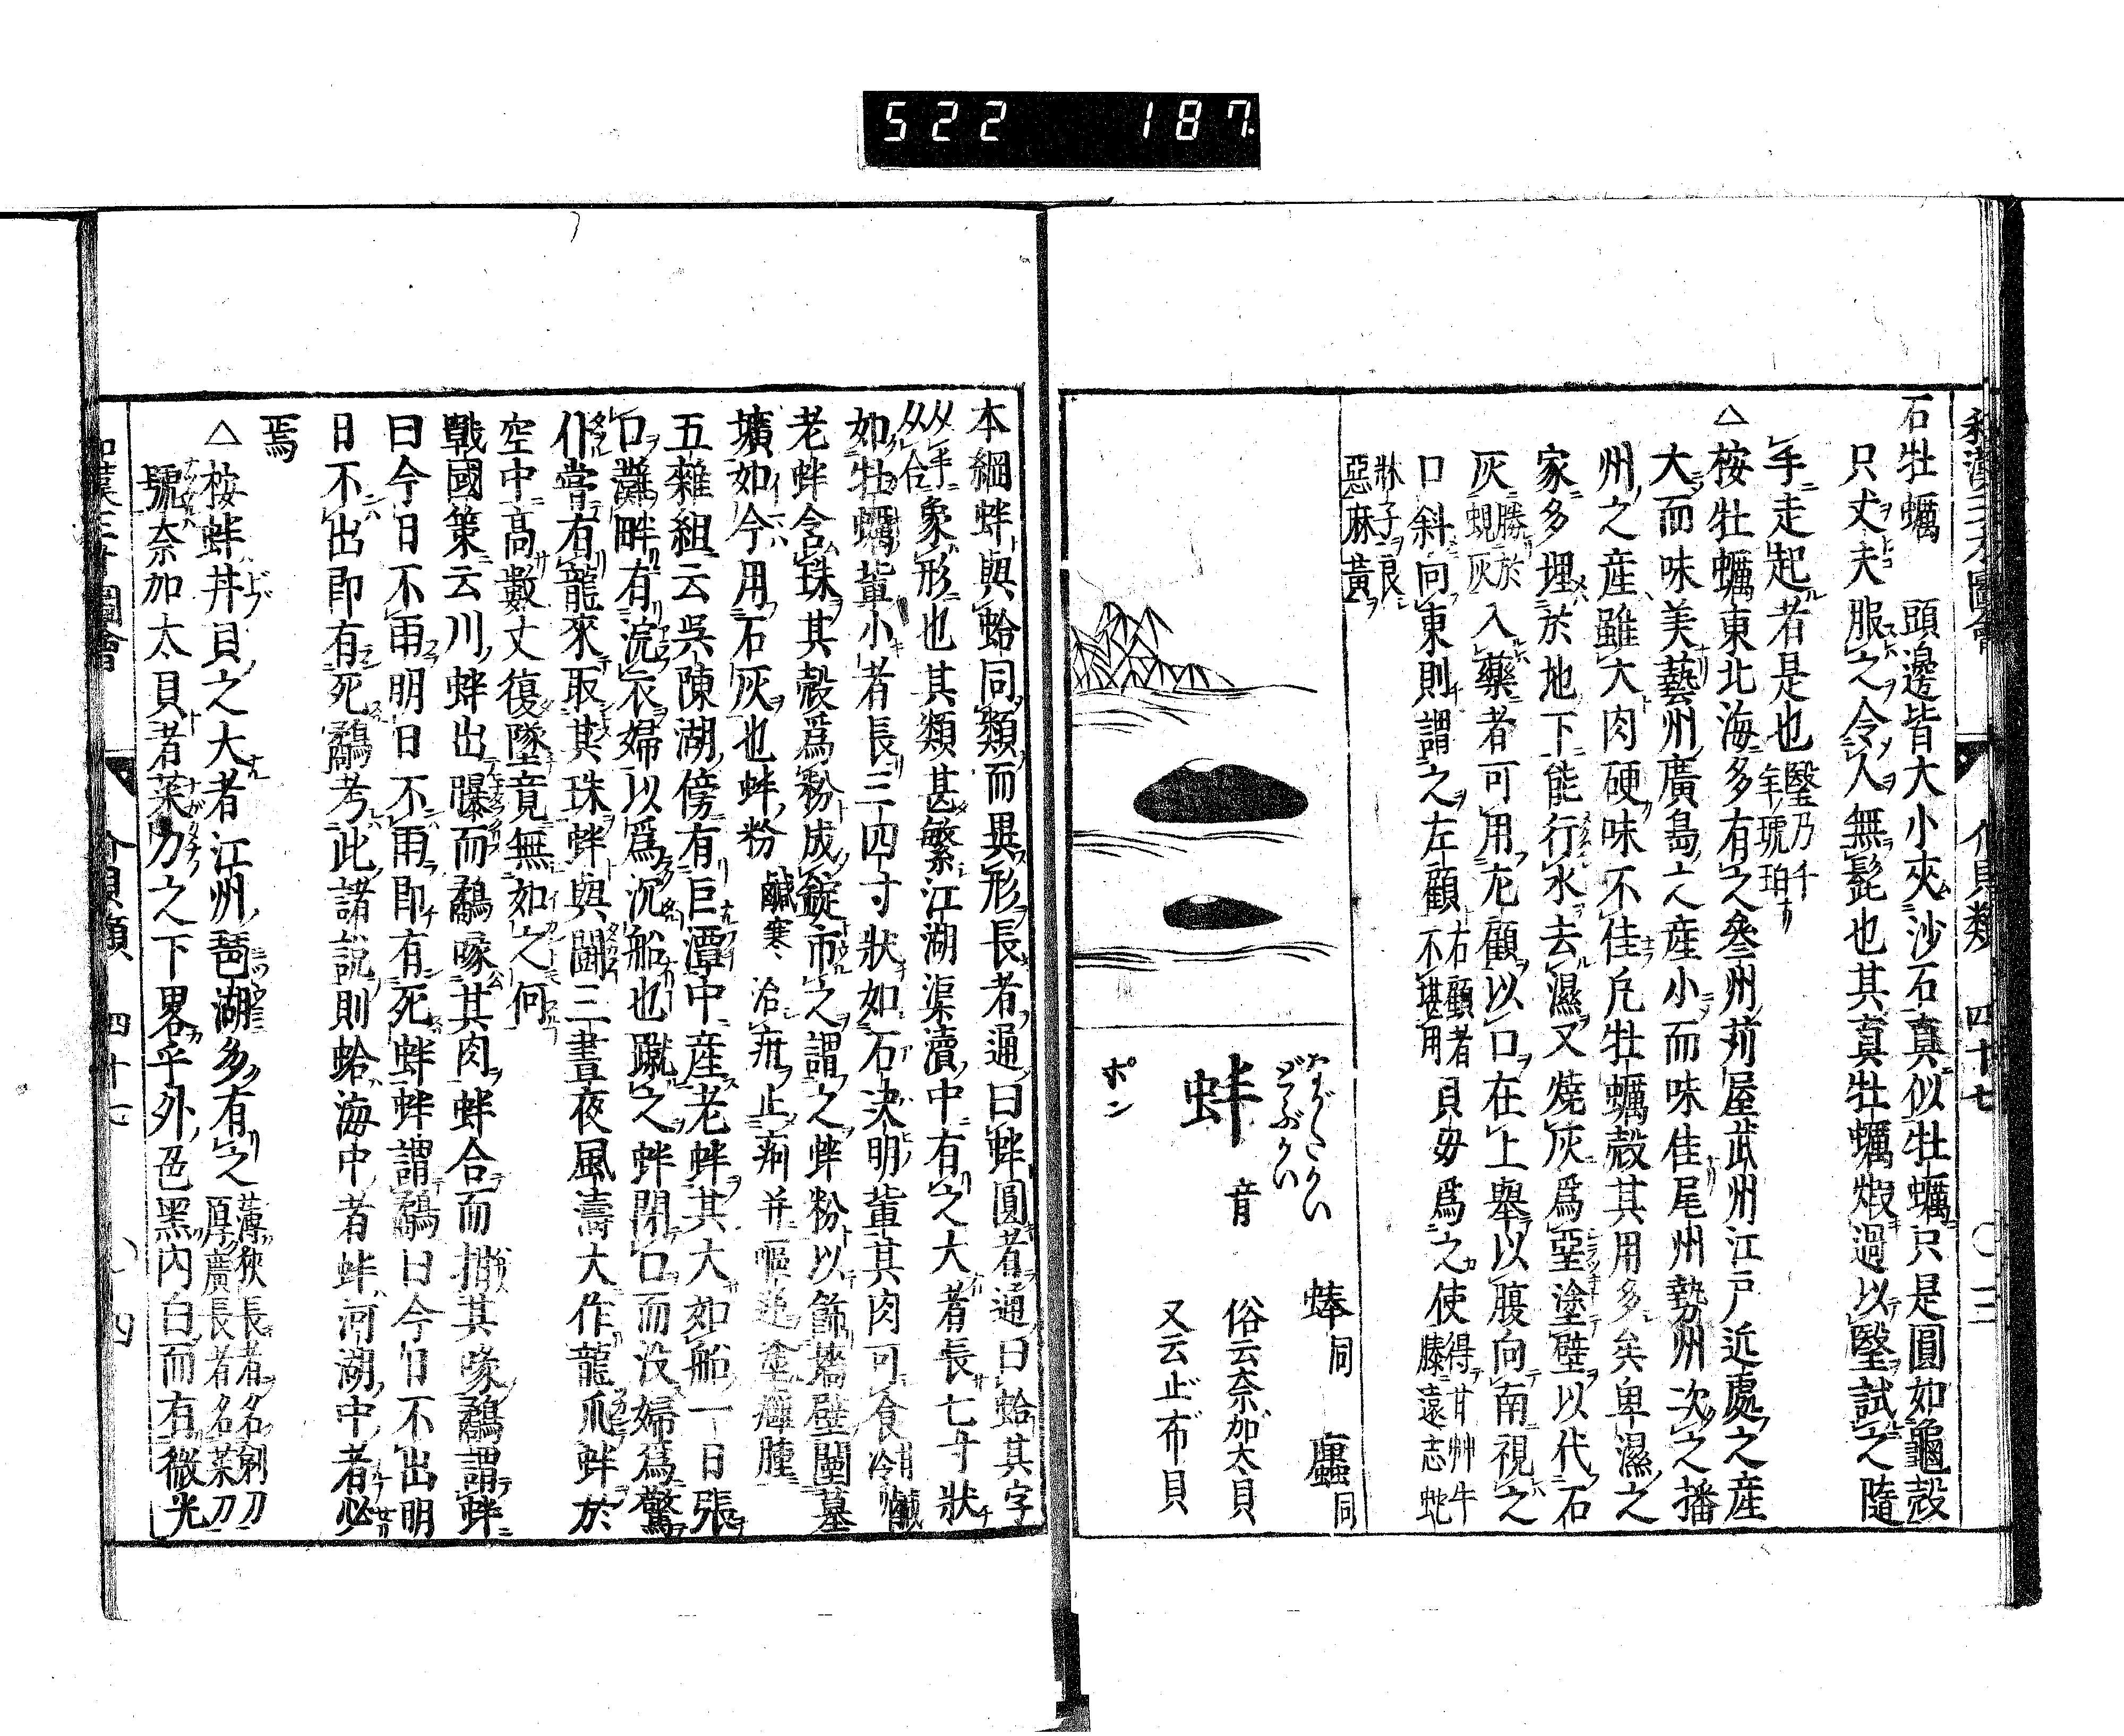 522 187
和漢三才圖會 介貝類 四十七 〇三
石牡蠣 頭邊皆大小夾沙石真似牡蠣只是圓如龜殼
只丈夫服之令人無髭也其真牡蠣煆過以瑿試之隨
手走起者是也瑿乃千年琥珀
△按牡蠣東北海多有之參州苅屋武州江戸近處之産
大而味美藝州廣島之産小而味佳尾州勢州次之播
州之産雖大肉硬味不佳凡牡蠣殼其用多矣卑濕之
家多埋於地下能行水去濕又燒灰爲堊塗壁以代石
灰勝於蜆灰入藥者可用左顧以口在上舉以腹向南視之
口斜向東則謂之左顧右顧者不堪用貝母爲之使得甘艸牛膝遠志蛇
牀子良惡麻黄
ながたがい
どぶがい
蚌 音
ポン
蜯同 蠯同
俗云奈加太貝
又云止布貝
本綱蚌與蛤同類而異形長者通曰蚌圓者通曰蛤其字
從丰從合象形也其類甚繁江湖渠瀆中有之大者長七寸狀
如牡蠣輩小者長三四寸狀如石決明輩其肉可食甘鹹冷
老蚌含珠其殼爲粉成錠市之謂之蚌粉以飾墻壁闉墓
壙如今用石灰也蚌粉鹹寒治疳止痢并嘔逆塗癰腫
五雜組云吳陳湖傍有巨潭中産老蚌其大如船一日張
口灘畔有浣衣婦以爲沉船也蹴之蚌閉口而没婦爲驚
仆嘗有龍來取其珠蚌與鬪三晝夜風濤大作龍爪蚌於
空中高數丈復墜竟無如之何
戰國策云川蚌出曝而鷸啄其肉蚌合而箝其喙鷸謂蚌
曰今日不雨明日不雨即有死蚌蚌謂鷸曰今日不出明
日不出即有死鷸考此諸説則蛤海中者蚌河湖中者必
焉
△按蚌丼貝之大者江州琶湖多有之薄狹長者名剃刀厚廣長者名菜刀
號奈加太貝者菜刀之下畧乎外色黑内白而有微光
和漢三才圖會 介貝類 四十七 〇四